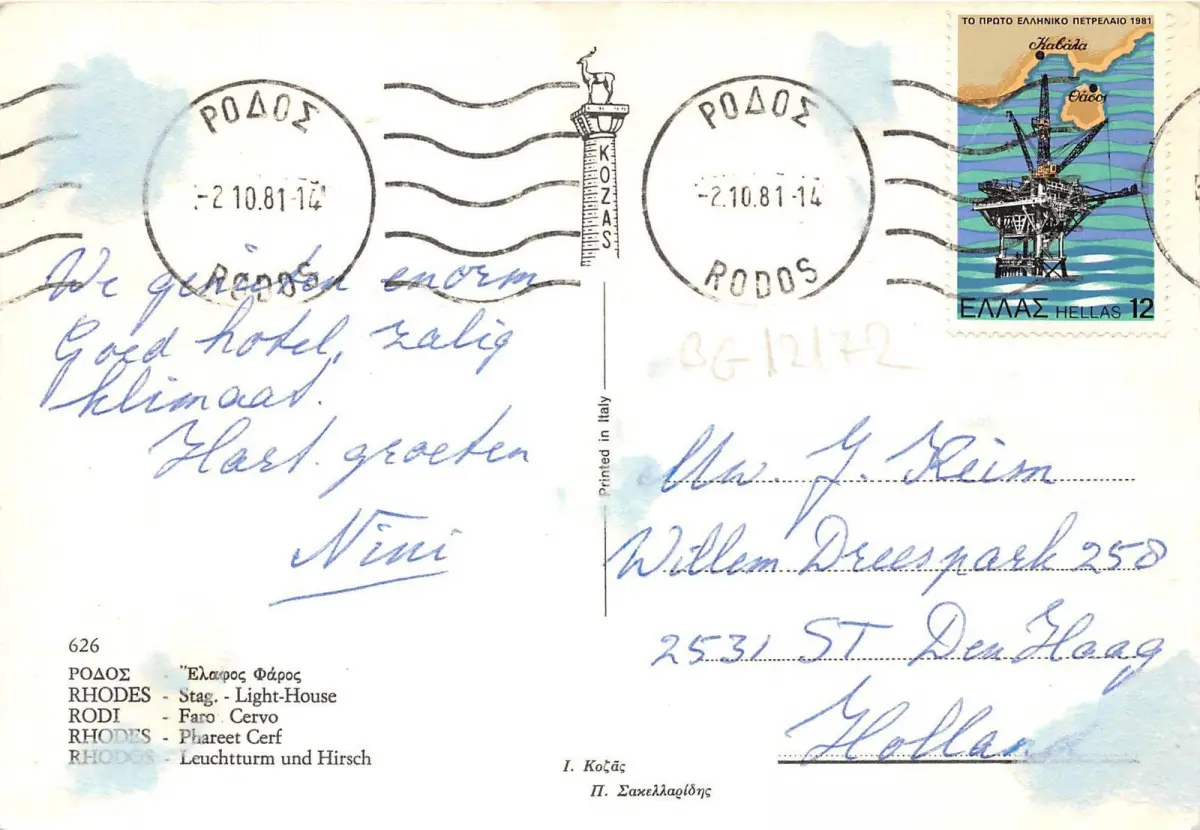 ΤΟ ΠΡΩΤΟ ΕΛΛΗΝΙΚΟ ΠΕΤΡΕΛΑΙΟ 1981
Καβάλα
Θάσος
ΕΛΛΑΣ HELLAS 12
ΡΟΔΟΣ
-2.10.81-14
RODOS
KOZAS
ΡΟΔΟΣ
-2.10.81-14
RODOS
We genieten enorm
Goed hotel, zalig
klimaat.
Hart. groeten
Nini
BG/2/72
Printed in Italy
Mw. J. Keim
Willem Dreespark 258
2531 ST Den Haag
Holland
626
ΡΟΔΟΣ - Ἔλαφος Φάρος
RHODES - Stag. - Light-House
RODI - Faro Cervo
RHODES - Phareet Cerf
RHODOS - Leuchtturm und Hirsch
Ι. Κοζᾶς
Π. Σακελλαρίδης